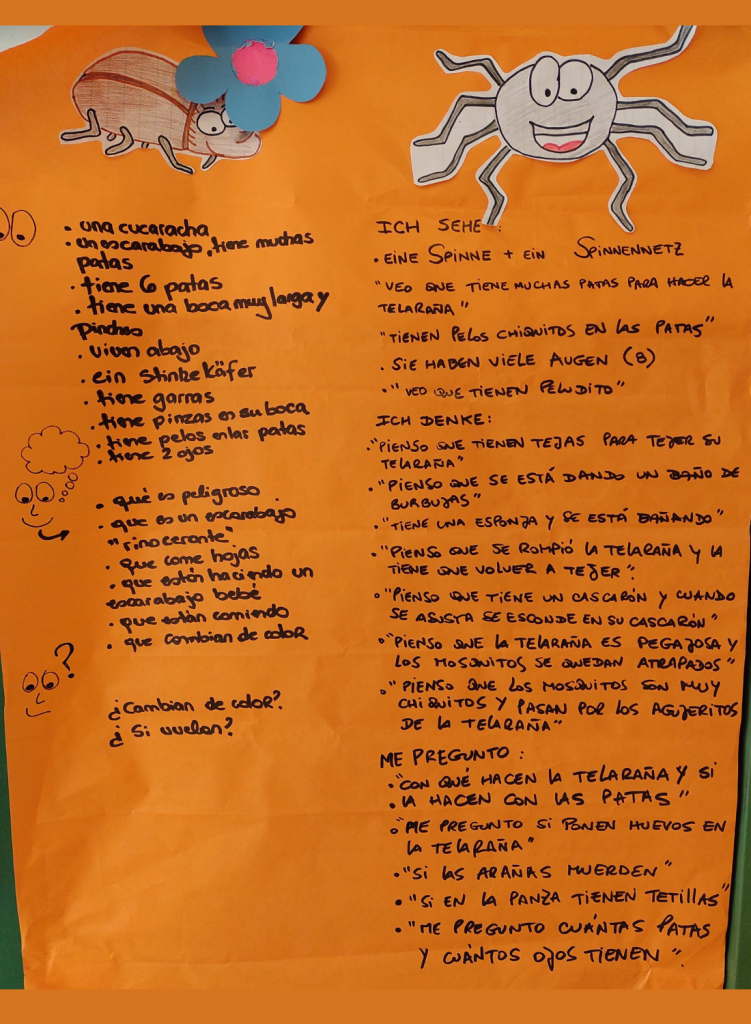 • una cucaracha
• un escarabajo, tiene muchas
patas
• tiene 6 patas
• tiene una boca muy larga y
pinches
• viven abajo
• ein Stinkekäfer
• tiene garras
• tiene pinzas en su boca
• tiene pelos en las patas
• tiene 2 ojos
• qué es peligroso
• que es un escarabajo
"rinocerante".
• que come hojas
• que están haciendo un
escarabajo bebé
• que están comiendo
• que cambian de color
?
¿Cambian de color?
¿Si vuelan?
ICH SEHE:
• EINE SPINNE + EIN SPINNENNETZ
"VEO QUE TIENE MUCHAS PATAS PARA HACER LA
TELARAÑA"
"TIENEN PELOS CHIQUITOS EN LAS PATAS"
• SIE HABEN VIELE AUGEN (8)
• "VEO QUE TIENEN PELUDITO"
ICH DENKE:
• "PIENSO QUE TIENEN TEJAS PARA TEJER SU
TELARAÑA"
• "PIENSO QUE SE ESTÁ DANDO UN BAÑO DE
BURBUJAS"
• "TIENE UNA ESPONJA Y SE ESTÁ BAÑANDO"
• "PIENSO QUE SE ROMPIÓ LA TELARAÑA Y LA
TIENE QUE VOLVER A TEJER".
• "PIENSO QUE TIENE UN CASCARÓN Y CUANDO
SE ASUSTA SE ESCONDE EN SU CASCARÓN"
• "PIENSO QUE LA TELARAÑA ES PEGAJOSA Y
LOS MOSQUITOS SE QUEDAN ATRAPADOS"
• "PIENSO QUE LOS MOSQUITOS SON MUY
CHIQUITOS Y PASAN POR LOS AGUJERITOS
DE LA TELARAÑA"
ME PREGUNTO:
• "CON QUÉ HACEN LA TELARAÑA Y SI
• LA HACEN CON LAS PATAS"
• "ME PREGUNTO SI PONEN HUEVOS EN
LA TELARAÑA"
• "SI LAS ARAÑAS MUERDEN"
• "SI EN LA PANZA TIENEN TETILLAS"
• "ME PREGUNTO CUÁNTAS PATAS
Y CUÁNTOS OJOS TIENEN".